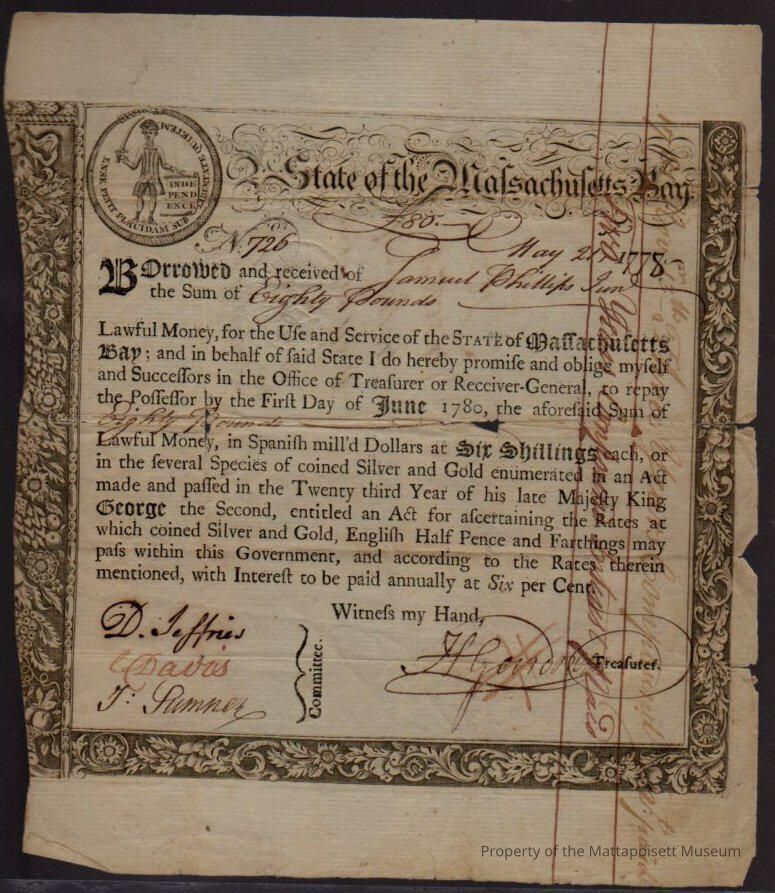 ENSE PETIT PLACIDAM SUB LIBERTATE QUIETEM
INDE
PEND
ENCE
State of the Maſsachuſetts Bay.
£80.—
N. 726
May 1778.
BOrrowed and received of Samuel Phillips Junr
the Sum of Eighty Pounds
Lawful Money, for the Uſe and Service of the STATE of Maſſachuſetts
Bay; and in behalf of ſaid State I do hereby promiſe and oblige myſelf
and Succeſſors in the Office of Treaſurer or Receiver-General, to repay
the Poſſeſſor by the Firſt Day of June 1780, the aforeſaid Sum of
Eighty Pounds
Lawful Money, in Spaniſh mill'd Dollars at Six Shillings each, or
in the ſeveral Species of coined Silver and Gold enumerated in an Act
made and paſſed in the Twenty third Year of his late Majeſty King
George the Second, entitled an Act for aſcertaining the Rates at
which coined Silver and Gold, Engliſh Half Pence and Farthings may
paſs within this Government, and according to the Rates therein
mentioned, with Intereſt to be paid annually at Six per Cent.
Witneſs my Hand,
D. Jeffries
C Davis
T: Sumner
Committee.
H Gardner Treaſurer.
One Year
Property of the Mattapoisett Museum